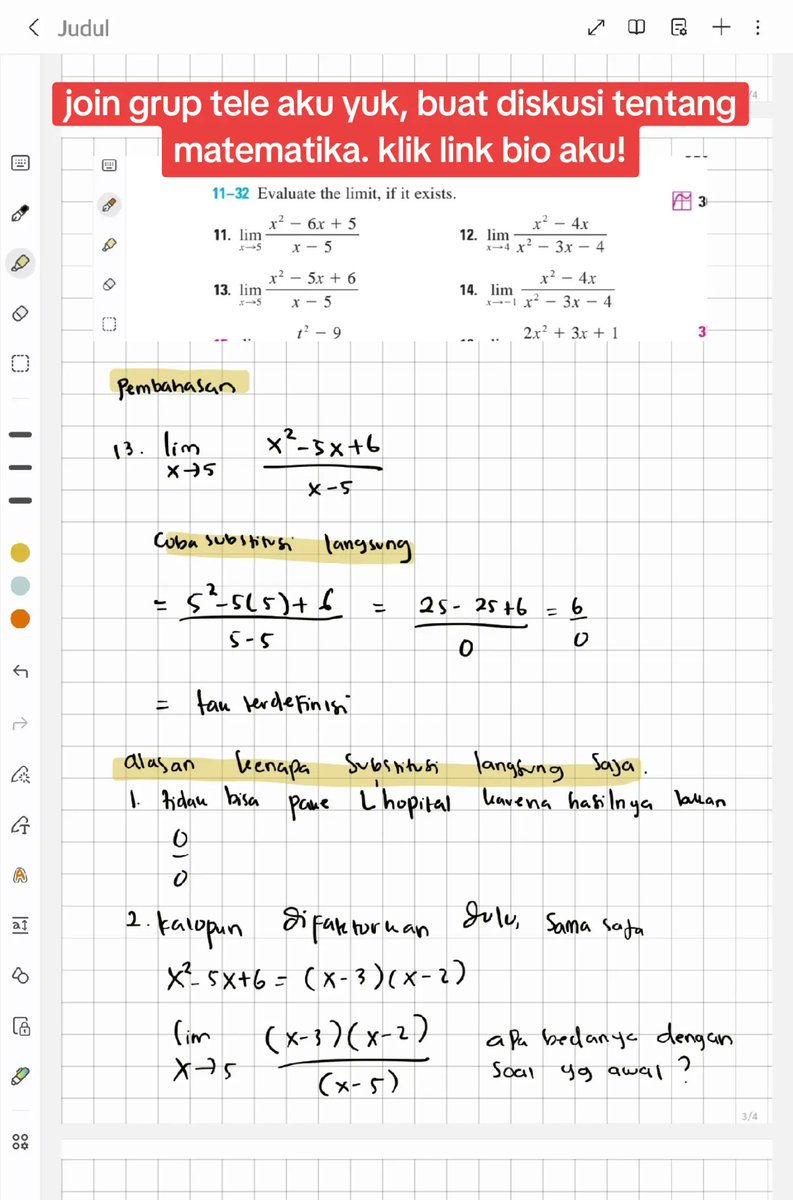 Judul
join grup tele aku yuk, buat diskusi tentang
matematika. klik link bio aku!
/4
11–32 Evaluate the limit, if it exists.
3
11. lim x→5 (x² − 6x + 5)/(x − 5)
12. lim x→4 (x² − 4x)/(x² − 3x − 4)
13. lim x→5 (x² − 5x + 6)/(x − 5)
14. lim x→−1 (x² − 4x)/(x² − 3x − 4)
t² − 9
2x² + 3x + 1
3
Pembahasan
13. lim x→5 (x²-5x+6)/(x-5)
Coba substitusi langsung
= (5²-5(5)+6)/(5-5) = (25-25+6)/0 = 6/0
= tak terdefinisi
alasan kenapa substitusi langsung saja.
1. tidak bisa pake L'hopital karena hasilnya bukan
0/0
2. kalopun difaktorkan dulu, sama saja
x²-5x+6 = (x-3)(x-2)
lim x→5 ((x-3)(x-2))/(x-5) apa bedanya dengan
soal yg awal?
3/4